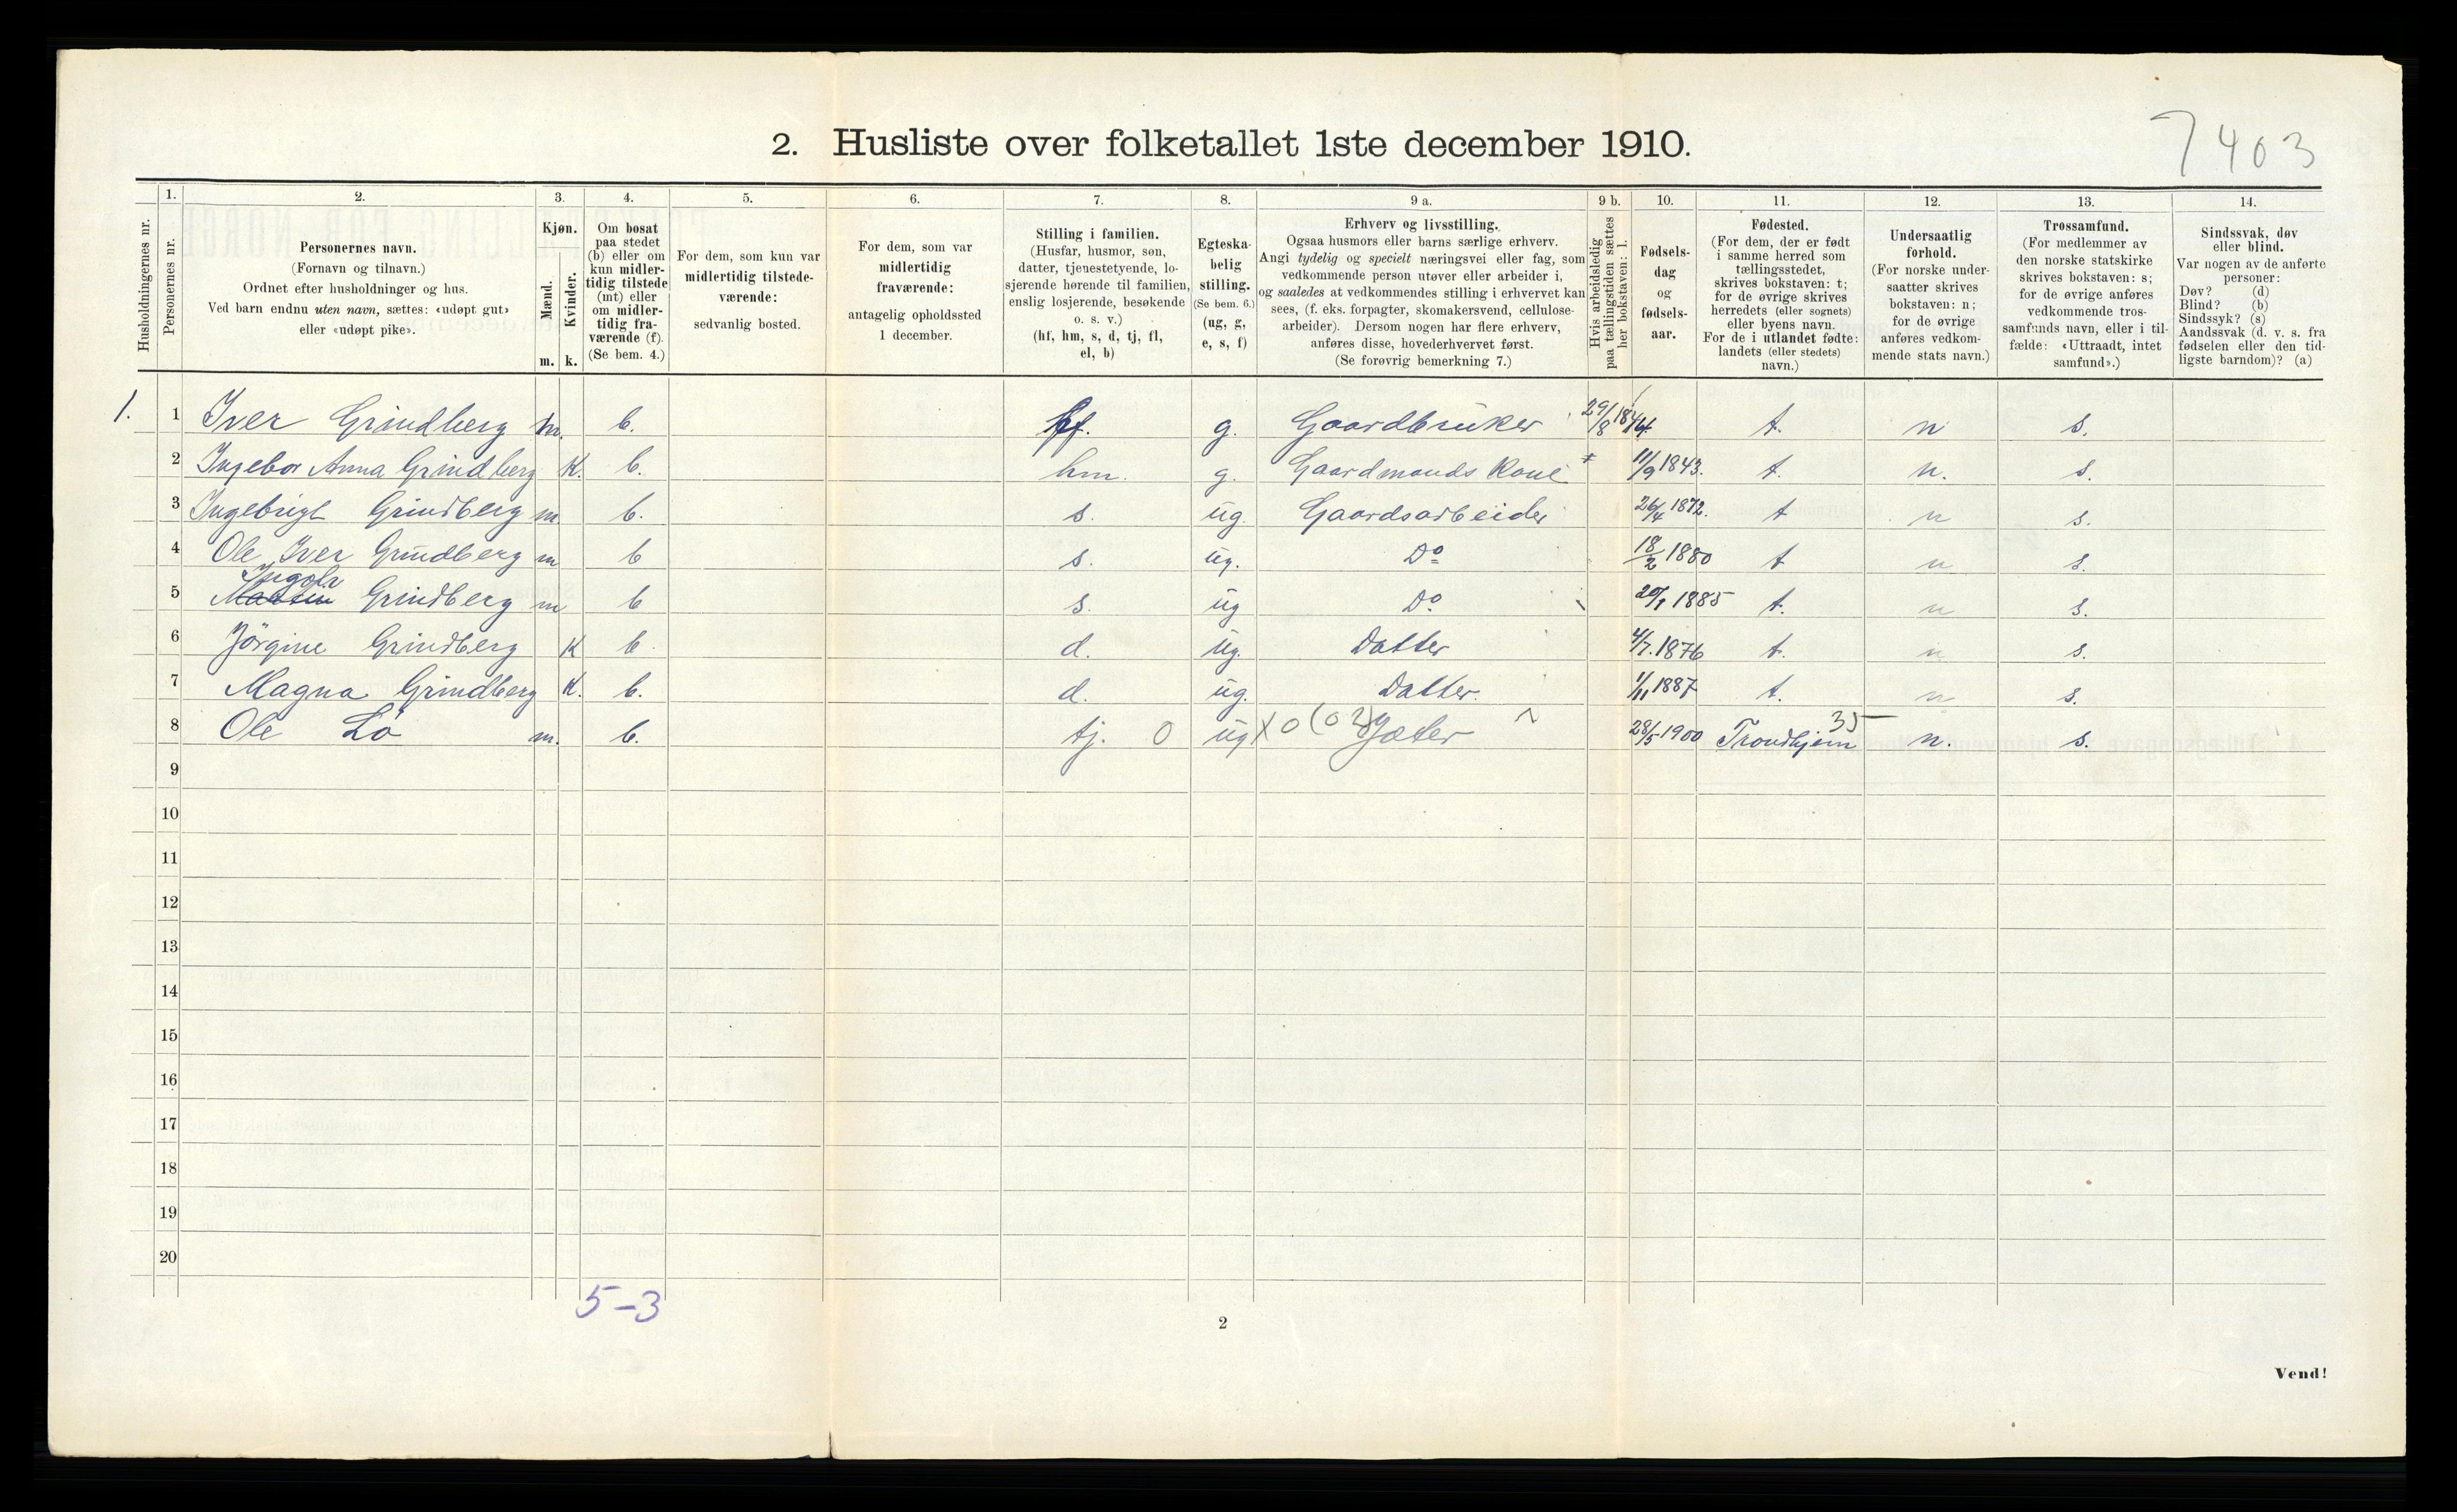 7403
2. Husliste over folketallet 1ste december 1910.
Husholdningernes nr.
1.
Personernes nr.
2.
Personernes navn.
(Fornavn og tilnavn.)
Ordnet efter husholdninger og hus.
Ved barn endnu uten navn, sættes: «udøpt gut»
eller «udøpt pike».
3.
Kjøn.
Mænd.
m.
Kvinder.
k.
4.
Om bosat
paa stedet
(b) eller om
kun midler-
tidig tilstede
(mt) eller
om midler-
tidig fra-
værende (f).
(Se bem. 4.)
5.
For dem, som kun var
midlertidig tilstede-
værende:
sedvanlig bosted.
6.
For dem, som var
midlertidig
fraværende:
antagelig opholdssted
1 december.
7.
Stilling i familien.
(Husfar, husmor, søn,
datter, tjenestetyende, lo-
sjerende hørende til familien,
enslig losjerende, besøkende
o. s. v.)
(hf, hm, s, d, tj, fl,
el, b)
8.
Egteska-
belig
stilling.
(Se bem. 6.)
(ug, g,
e, s, f)
9 a.
Erhverv og livsstilling.
Ogsaa husmors eller barns særlige erhverv.
Angi tydelig og specielt næringsvei eller fag, som
vedkommende person utøver eller arbeider i,
og saaledes at vedkommendes stilling i erhvervet kan
sees, (f. eks. forpagter, skomakersvend, cellulose-
arbeider). Dersom nogen har flere erhverv,
anføres disse, hovederhvervet først.
(Se forøvrig bemerkning 7.)
9 b.
Hvis arbeidsledig
paa tællingstiden sættes
her bokstaven: l.
10.
Fødsels-
dag
og
fødsels-
aar.
11.
Fødested.
(For dem, der er født
i samme herred som
tællingsstedet,
skrives bokstaven: t;
for de øvrige skrives
herredets (eller sognets)
eller byens navn.
For de i utlandet fødte:
landets (eller stedets)
navn.)
12.
Undersaatlig
forhold.
(For norske under-
saatter skrives
bokstaven: n;
for de øvrige
anføres vedkom-
mende stats navn.)
13.
Trossamfund.
(For medlemmer av
den norske statskirke
skrives bokstaven: s;
for de øvrige anføres
vedkommende tros-
samfunds navn, eller i til-
fælde: «Uttraadt, intet
samfund».)
14.
Sindssvak, døv
eller blind.
Var nogen av de anførte
personer:
Døv? (d)
Blind? (b)
Sindssyk? (s)
Aandssvak (d. v. s. fra
fødselen eller den tid-
ligste barndom)? (a)
1. 1 Iver Grindberg m. b. hf. g. Gaardbruker 29/8 1844 t. n s.
2 Ingebor Anna Grindberg K. b. hm. g. Gaardmands Kone 11/9 1843. t. n. s.
3 Ingebrigt Grindberg m b. s. ug. Gaardsarbeider 26/4 1872. t n s.
4 Ole Iver Grindberg m b s. ug. Do 18/2 1880 t n s.
Ingolv
5 Martin Grindberg m b s. ug Do 20/1 1885 t. n s.
6 Jörgine Grindberg K b d. ug. Datter 4/7. 1876 t. n s.
7 Magna Grindberg K. b. d. ug. Datter. 1/11 1887 t. n s.
8 Ole Lö m. b. tj. 0 ug X 0 (02) Gjæter 28/5 1900 Trondhjem 35 n. s.
9
10
11
12
13
14
15
16
17
18
19
20
5-3
2
Vend!